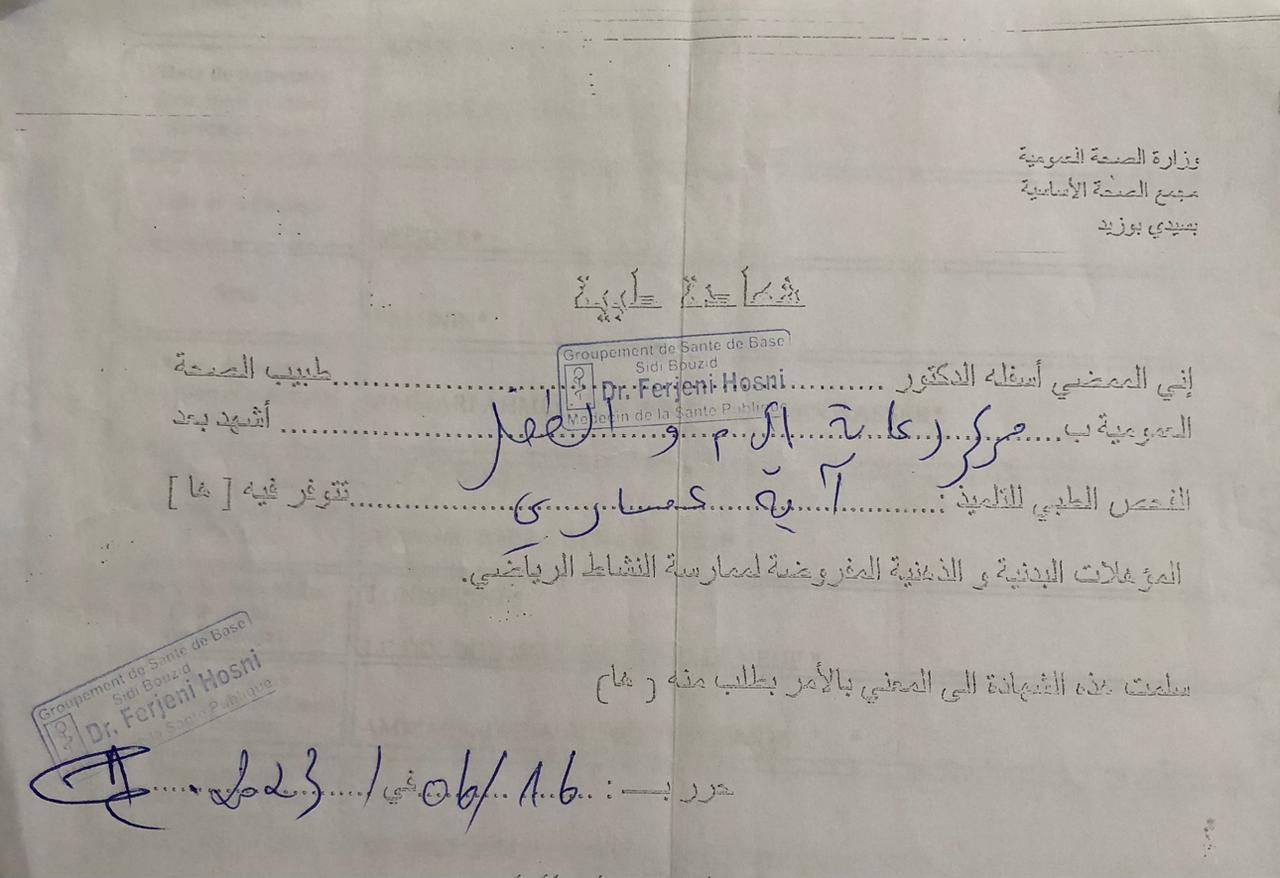 وزارة الصحة العمومية
مجمع الصحة الأساسية
بسيدي بوزيد
شهادة طبية
Groupement de Sante de Base
Sidi Bouzid
Dr. Ferjeni Hosni
Medecin de la Sante Publique
إني الممضي أسفله الدكتور .................... طبيب الصحة
العمومية ب..... مركز رعاية الأم و الطفل ..... أشهد بعد
الفحص الطبي للتلميذ : ..... آية عماري ..... تتوفر فيه [ ها ]
المؤهلات البدنية و الذهنية المفروضة لممارسة النشاط الرياضي.
سلمت هذه الشهادة الى المعني بالأمر بطلب منه ( ها )
Groupement de Sante de Base
Sidi Bouzid
Dr. Ferjeni Hosni
de la Sante Publique
حرر بـ : 16/06/ في 2023